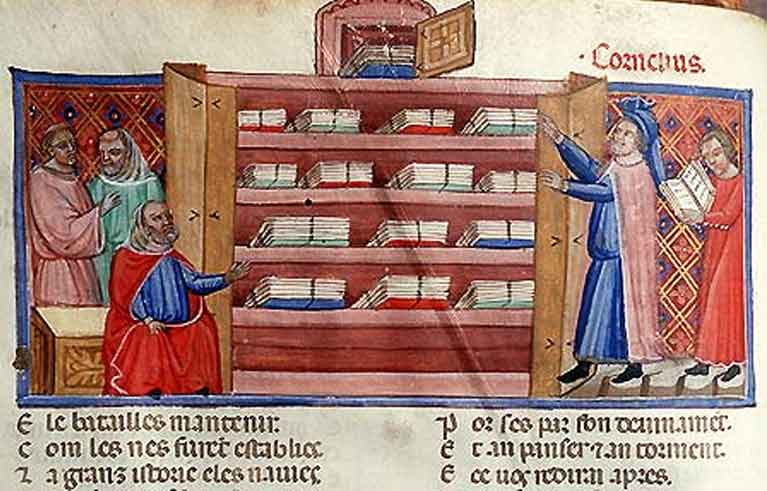 Cornelius.
E le batailles mantenir.
C om les nes furēt establies
⁊ a granz istorie eles nauies
P or ses par son deuinamēt.
E t an panser ⁊ an torment.
E ce uos redirai apres.